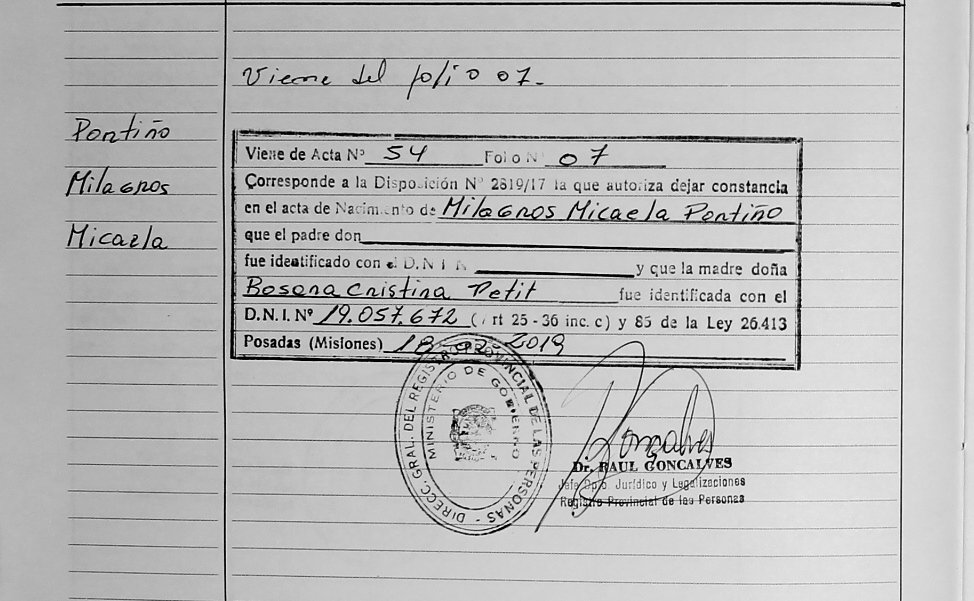 Viene del folio 07.-
Portiño
Milagros
Micaela
Viene de Acta Nº 54 Folio Nº 07
Corresponde a la Disposición Nº 2819/17 la que autoriza dejar constancia
en el acta de Nacimiento de Milagros Micaela Portiño
que el padre don
fue identificado con el D.N.I. Nº y que la madre doña
Bosena Cristina Petit fue identificada con el
D.N.I. Nº 19.057.672 (Art 25 - 36 inc. c) y 85 de la Ley 26.413
Posadas (Misiones) 18-02-2019
DIRECC. GRAL. DEL REGISTRO PROVINCIAL DE LAS PERSONAS -
MINISTERIO DE GOBIERNO
Goncalves
Dr. RAUL GONCALVES
Jefe Dpto. Jurídico y Legalizaciones
Registro Provincial de las Personas